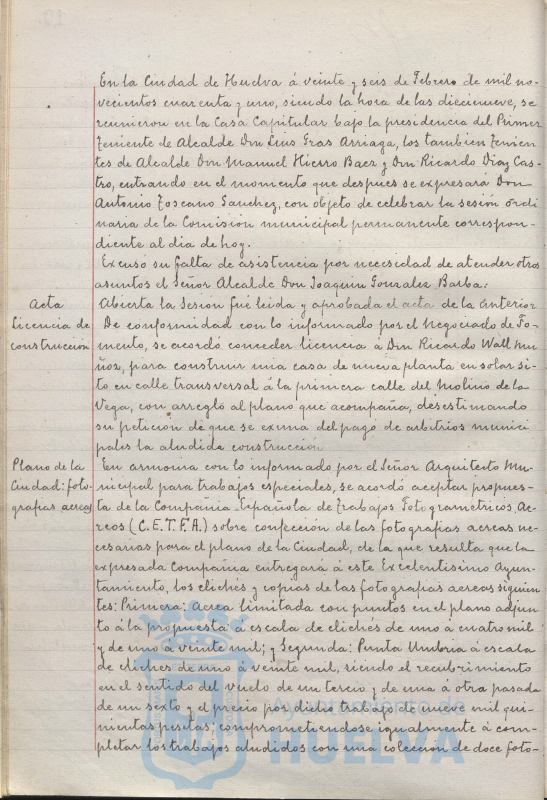 En la Ciudad de Huelva á veinte y seis de Febrero de mil no-
vecientos cuarenta y uno, siendo la hora de las diecinueve, se
reunieron en la Casa Capitular bajo la presidencia del Primer
Teniente de Alcalde Don Luis Gras Arriaga, los tambien Tenien
tes de Alcalde Don Manuel Hierro Baez y Don Ricardo Diaz Cas-
tro, entrando en el momento que despues se expresará Don
Antonio Toscano Sanchez, con objeto de celebrar la sesión ordi
naria de la Comisión municipal permanente correspon-
diente al dia de hoy.
Excusó su falta de asistencia por necesidad de atender otros
asuntos el Señor Alcalde Don Joaquin Gonzalez Barba.
Acta
Abierta la Sesión fué leida y aprobada el acta de la anterior
Licencia de
construcción
De conformidad con lo informado por el Negociado de Fo-
mento, se acordó conceder licencia á Don Ricardo Wall Mu
ñoz, para construir una casa de nueva planta en solar si-
to en calle transversal á la primera calle del Molino de la
Vega, con arreglo al plano que acompaña, desestimando
su peticion de que se exima del pago de arbitrios munici
pales la aludida construcción
Plano de la
Ciudad: foto-
grafias aereas
En armonia con lo informado por el Señor Arquitecto Mu-
nicipal para trabajos especiales, se acordó aceptar propues-
ta de la Compañia Española de Trabajos Fotogrametricos Ae-
reos (C.E.T.F.A.) sobre confección de las fotografias aereas ne-
cesarias para el plano de la Ciudad, de la que resulta que la
expresada Compañia entregará á este Excelentisimo Ayun-
tamiento, los clichés y copias de las fotografias aereas siguien
tes: Primera: Acrea limitada con puntos en el plano adjun
to á la propuesta á escala de clichés de uno á cuatro mil
y de uno á veinte mil; y Segunda: Punta Umbria á escala
de cliches de uno á veinte mil, siendo el recubrimiento
en el sentido del vuelo de un tercio y de una á otra pasada
de un sexto y el precio por dicho trabajo de nueve mil qui-
nientas pesetas, comprometiendose igualmente á com-
pletar los trabajos aludidos con una colección de doce foto-
Ayuntamiento de
HUELVA